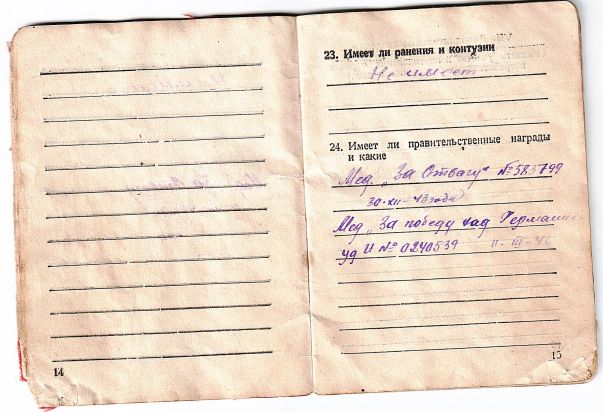 14
23. Имеет ли ранения и контузии
Не имеет
24. Имеет ли правительственные награды
и какие
Мед „За Отвагу“ № 585799
30-XII-43 года
Мед „За победу над Германией
уд И № 0240539
15